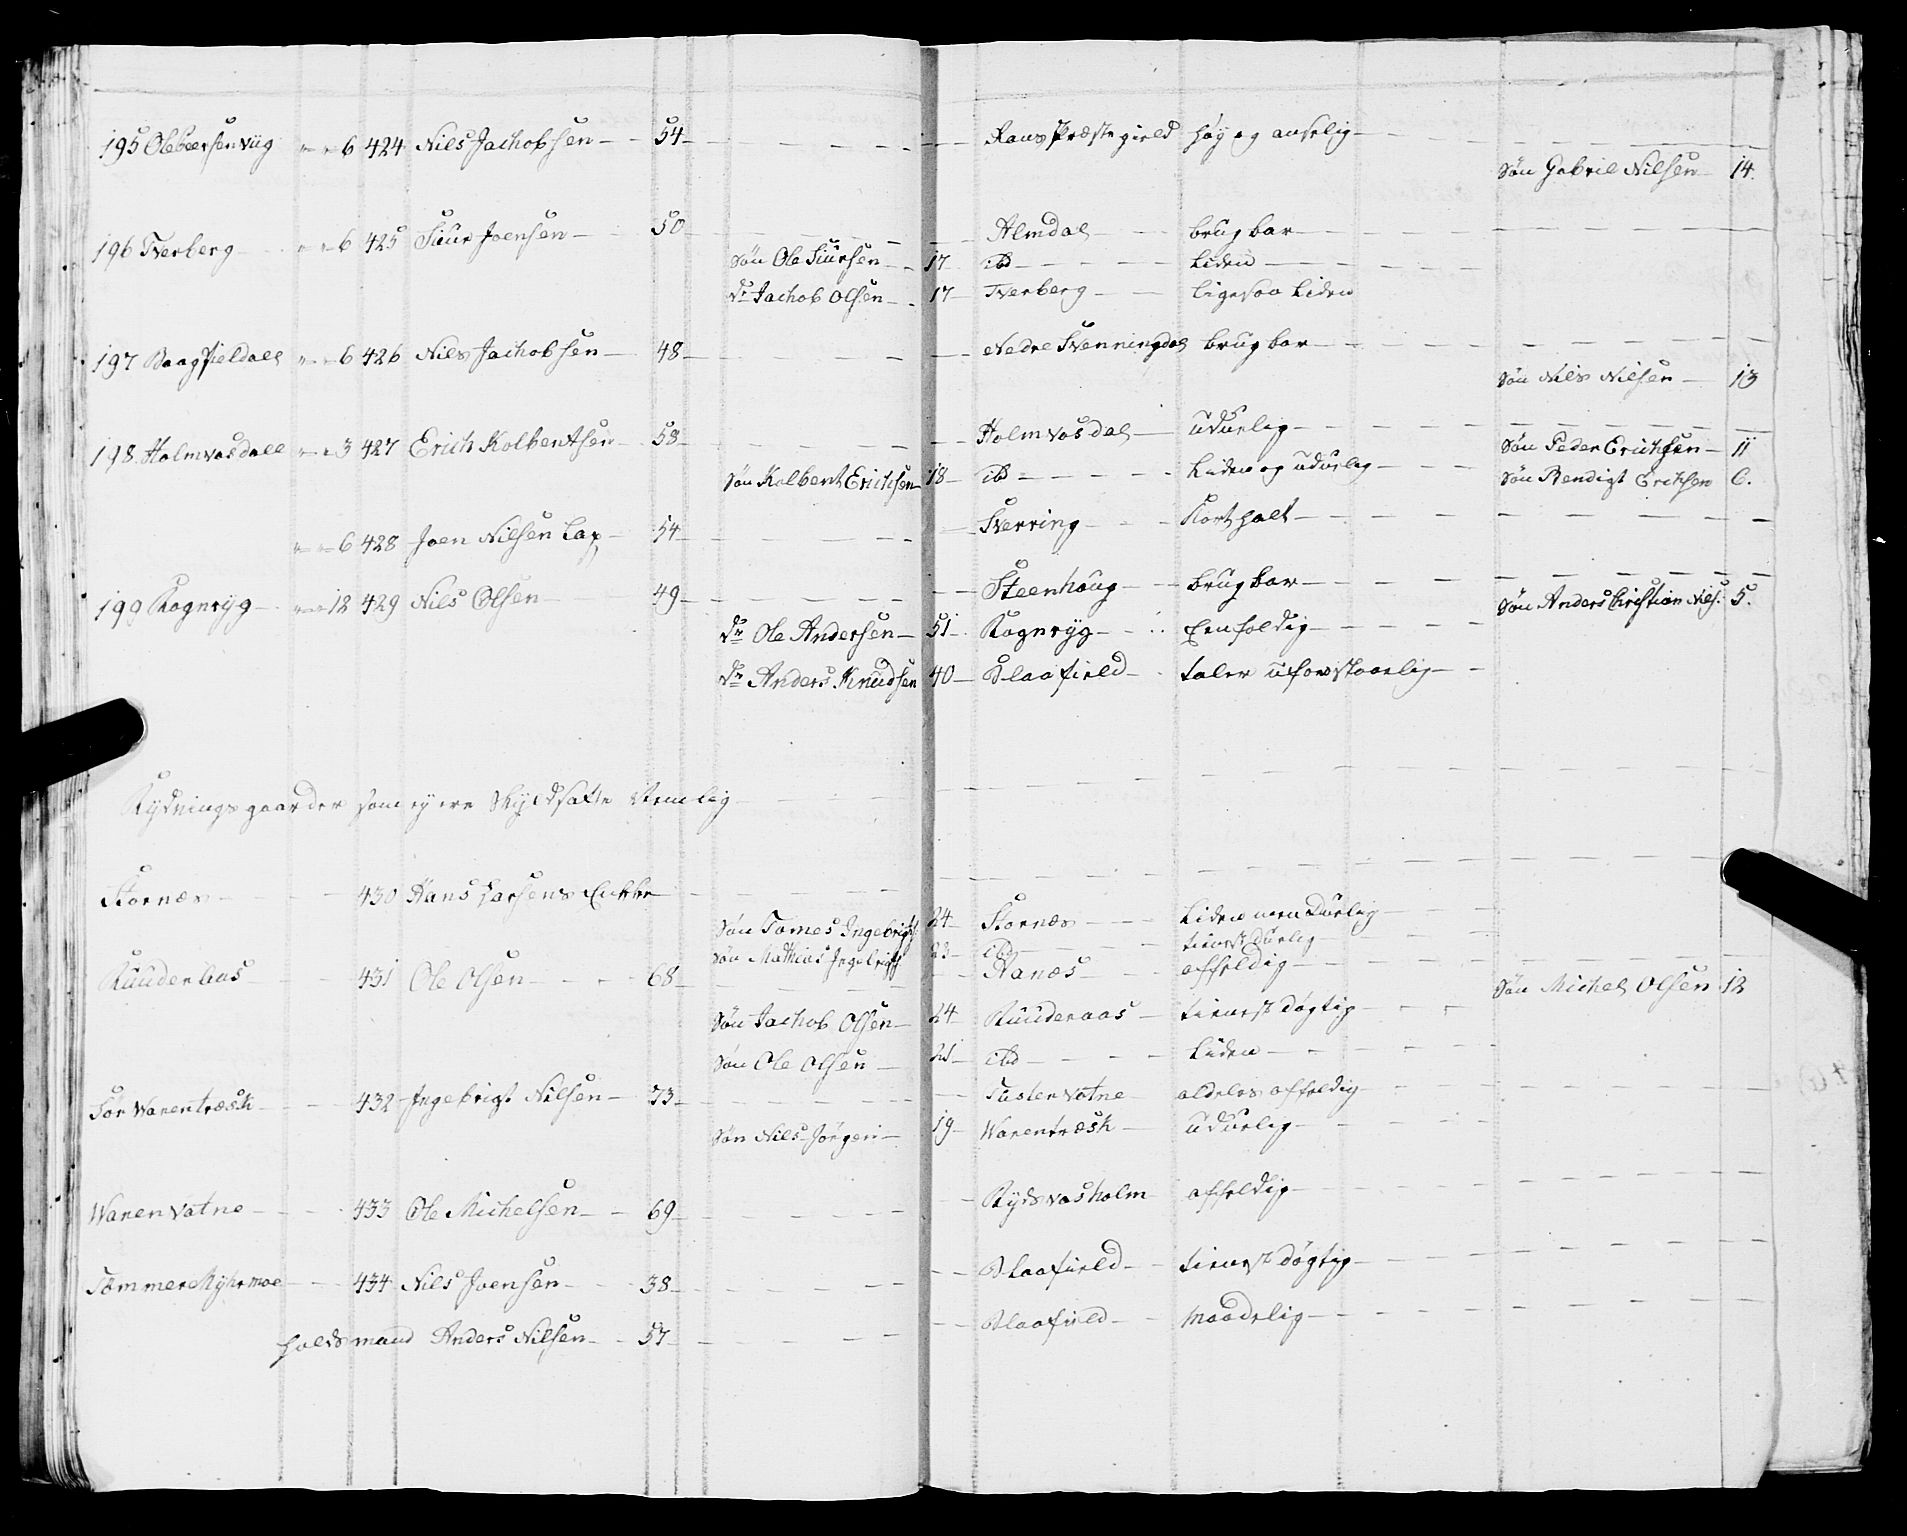 195 Olebeersenviig " " 6 424 Nils Jachobsen 54 Rans Præstegield høy og anselig
Søn Gabriel Nilsen 14.
196 Tverberg " " 6 425 Siur Joensen 50 Almdal brugbar
Søn Ole Siursen 17 ibd Liden
Dr Jachob Olsen 17 Tverberg ligesaa Liden
197 Baagfieldal " " 6 426 Nils Jachobsen 48 Nedre Svenningdal brugbar
Søn Nils Nilsen 13
198 Holmvasdall " " 3 427 Erich Kolbentsen 58 Holmvasdal udurlig Søn Peder Erichsen 11
Søn Kolbent Erichsen 18 ibd Liden og udurlig Søn Bendigt Erichsen 6.
" " 6 428 Joen Nilsen Lap 54 Sverring Kort halt
199 Kognryg " " 12 429 Nils Olsen 49 Steenhoug brugbar Søn Anders Christian Nils: 5.
Dr Ole Andersen 51 Kognryg Eenfoldig
Dr Anders Knudsen 40 Blaafield taler uforstaaelig
Rydningsgaarder som ey ere Skyldsatte Nemlig
Stornæs 430 Hans Larsens Enke
Søn Tomes Ingebrigts: 24 Stornæs Liden men Durlig
Søn Mathias Ingebrigts 23 ibd tienst Durlig
Ruuderaas 431 Ole Olsen 68 Ranæs affeldig Søn Michel Olsen 12
Søn Jachob Olsen 24 Ruuderaas tienest Døgtig
Søn Ole Olsen 21 ibd Liden
Sør Warentræsk 432 Ingebrigt Nilsen 73 Tustervatne aldeles affeldig
Søn Nils Jörgen 19 Warentræsk udurlig
Warenvatne 433 Ole Michelsen 69 Rysvasholm affeldig
Tømmer Myhrmoe 434 Nils Joensen 38 Blaafield tienest Døgtig
holdsmand Anders Nilsen 57 Blaafield Maadelig